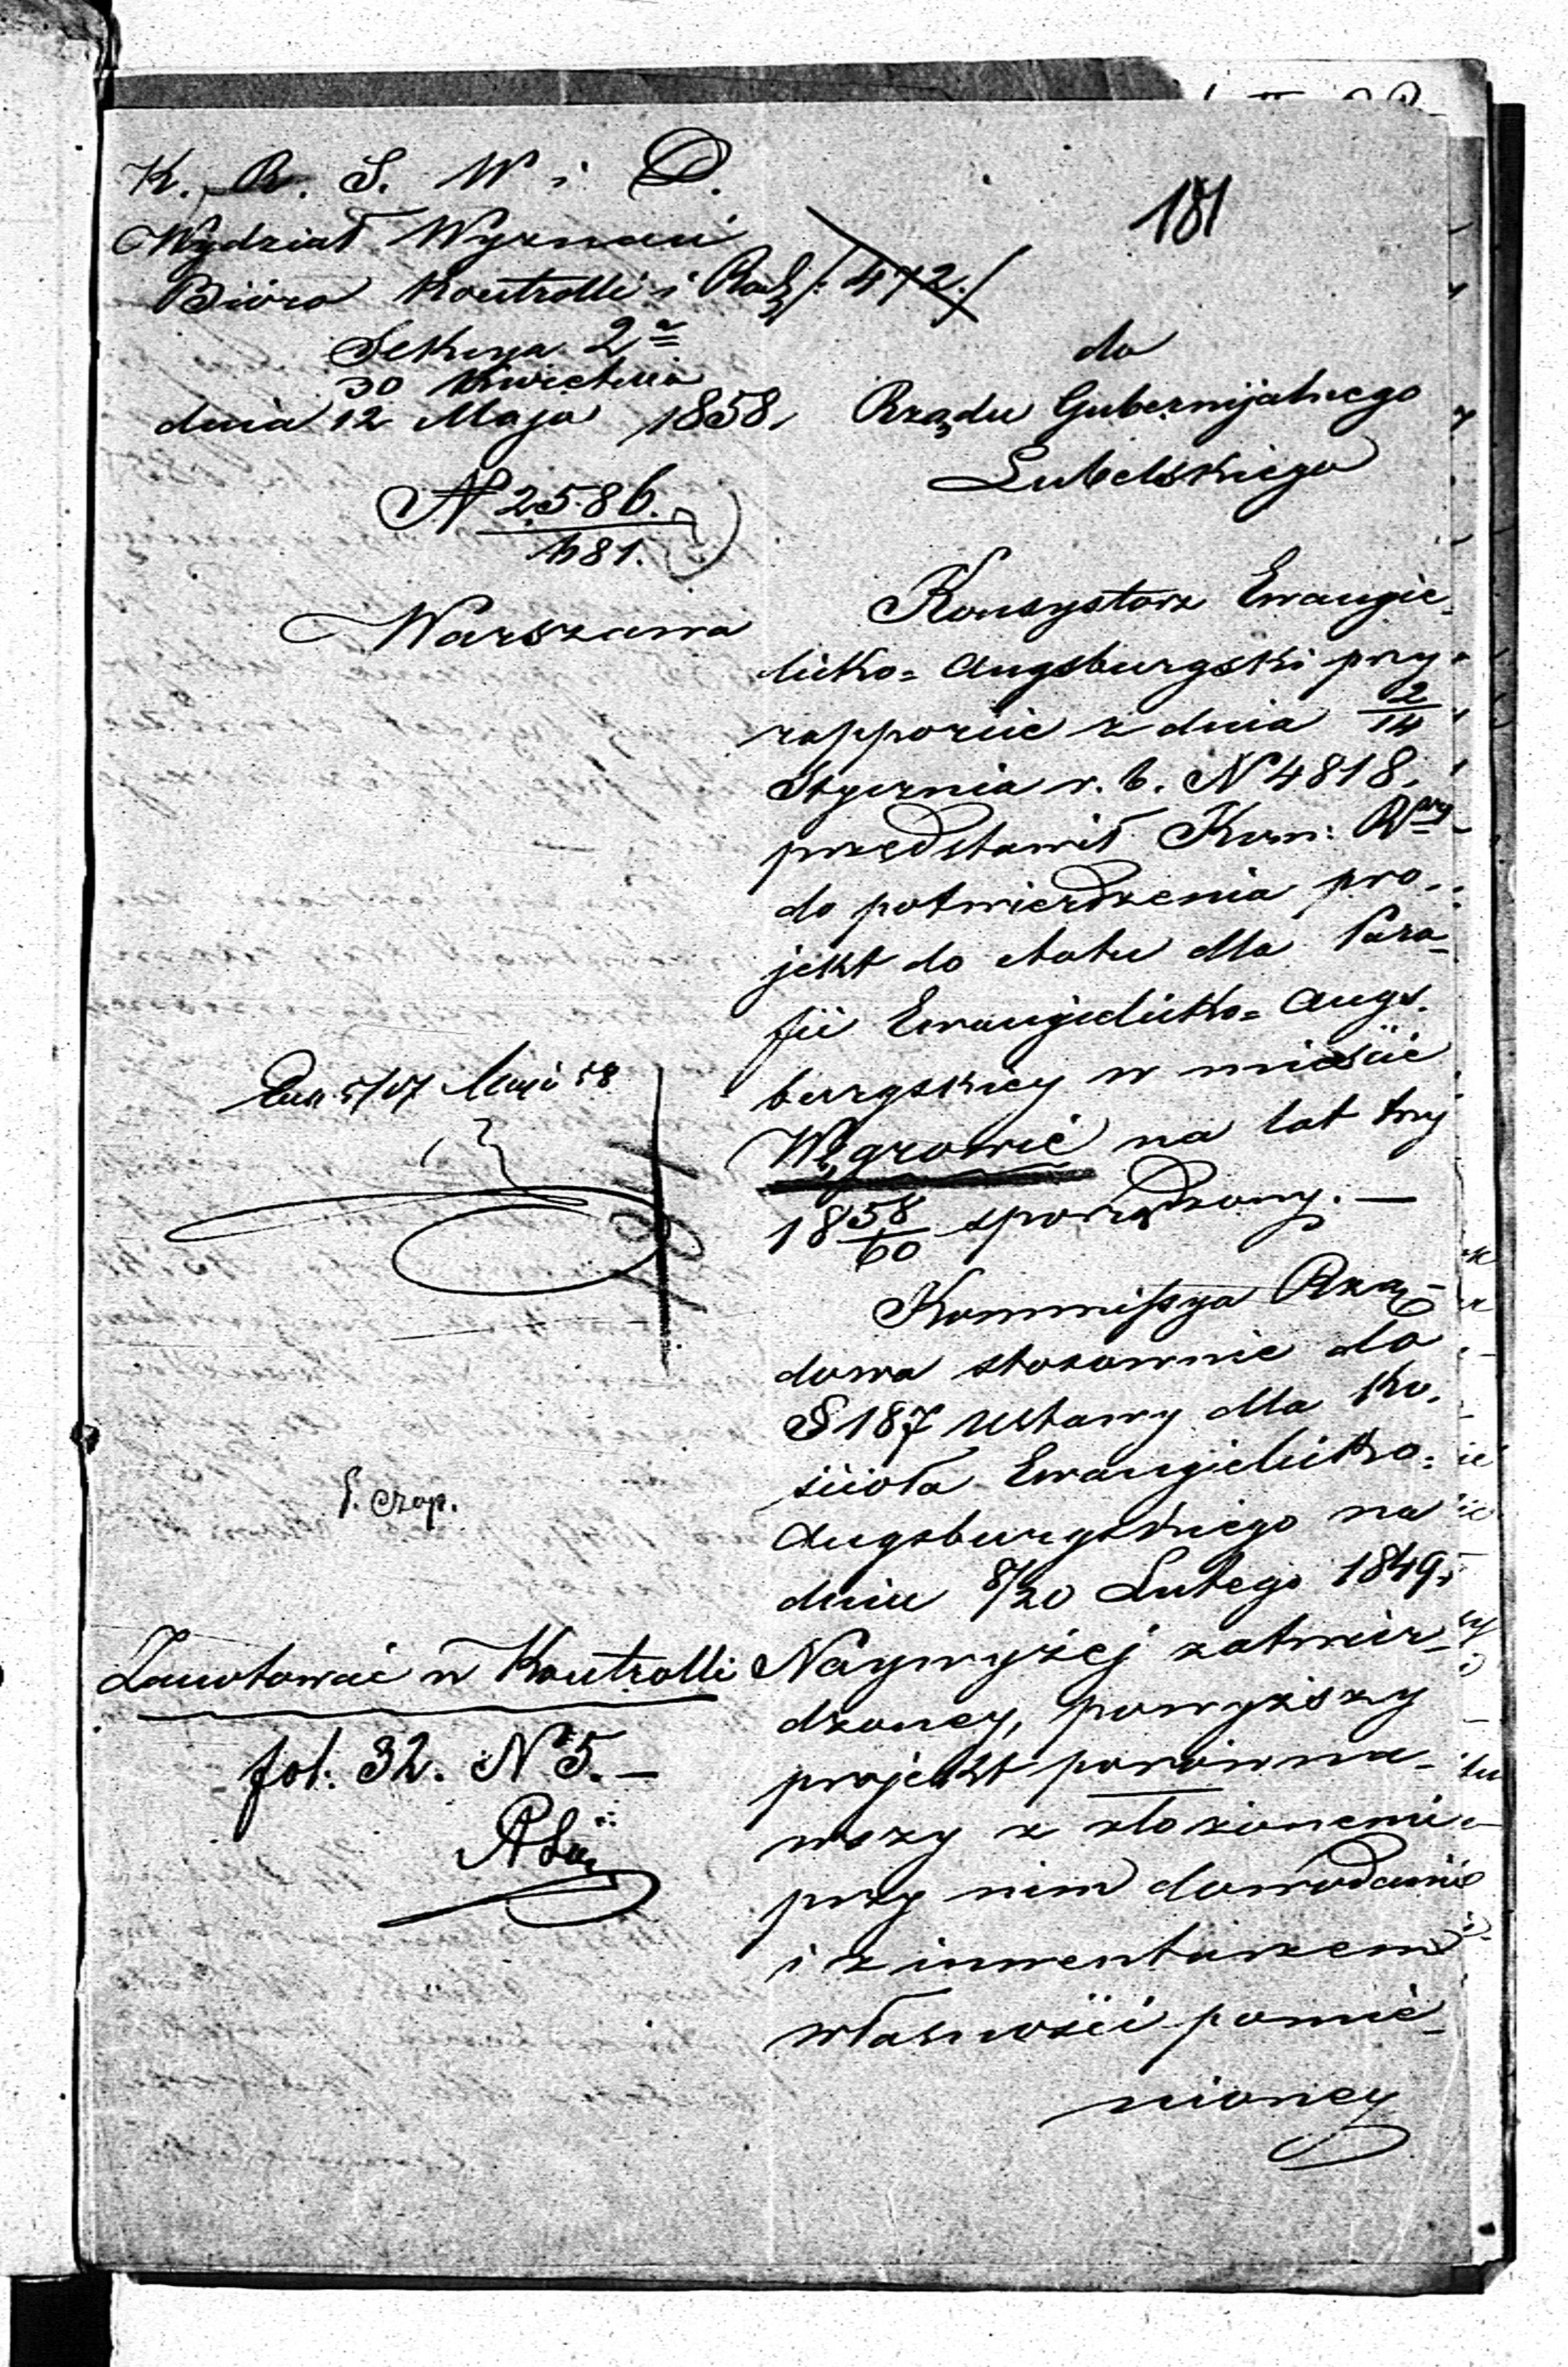 K. R. S. W i D.
Wydział Wyznań
Bióro Kontrolli i Rach /: 472. /
Sekcya 2a
30 Kwietnia
dnia 12 Maja 1858.
N 2586.
481.
Warszawa
181
do
Rządu Gubernijalnego
Lubelskiego
Konsystorz Ewangie-
licko= Augsburgski przy
rapporcie z dnia 2/14
Stycznia r. b. N 4818,
przedstawił Kom: Rwey
do potwierdzenia pro-
jekt do etatu dla Para-
fii Ewangielicko= Augs-
burgskiey w mieście
Węgrowie na lat trzy
18 58/60 sporządzony. —
Kommissya Rzą-
dowa stosownie do
§ 187 Ustawy dla Ko-
ścioła Ewangielicko=
Augsburgskiego na
dniu 8/20 Lutego 1849 r
Naywyżej zatwier-
dzoney, powyższy
projekt porówna-
wszy z złożonemi
przy nim dowodami
i z inwentarzem
własności pomie-
nioney
5/17 Maja 58
Zanotować w Kontrolli
fol: 32. N 5. —